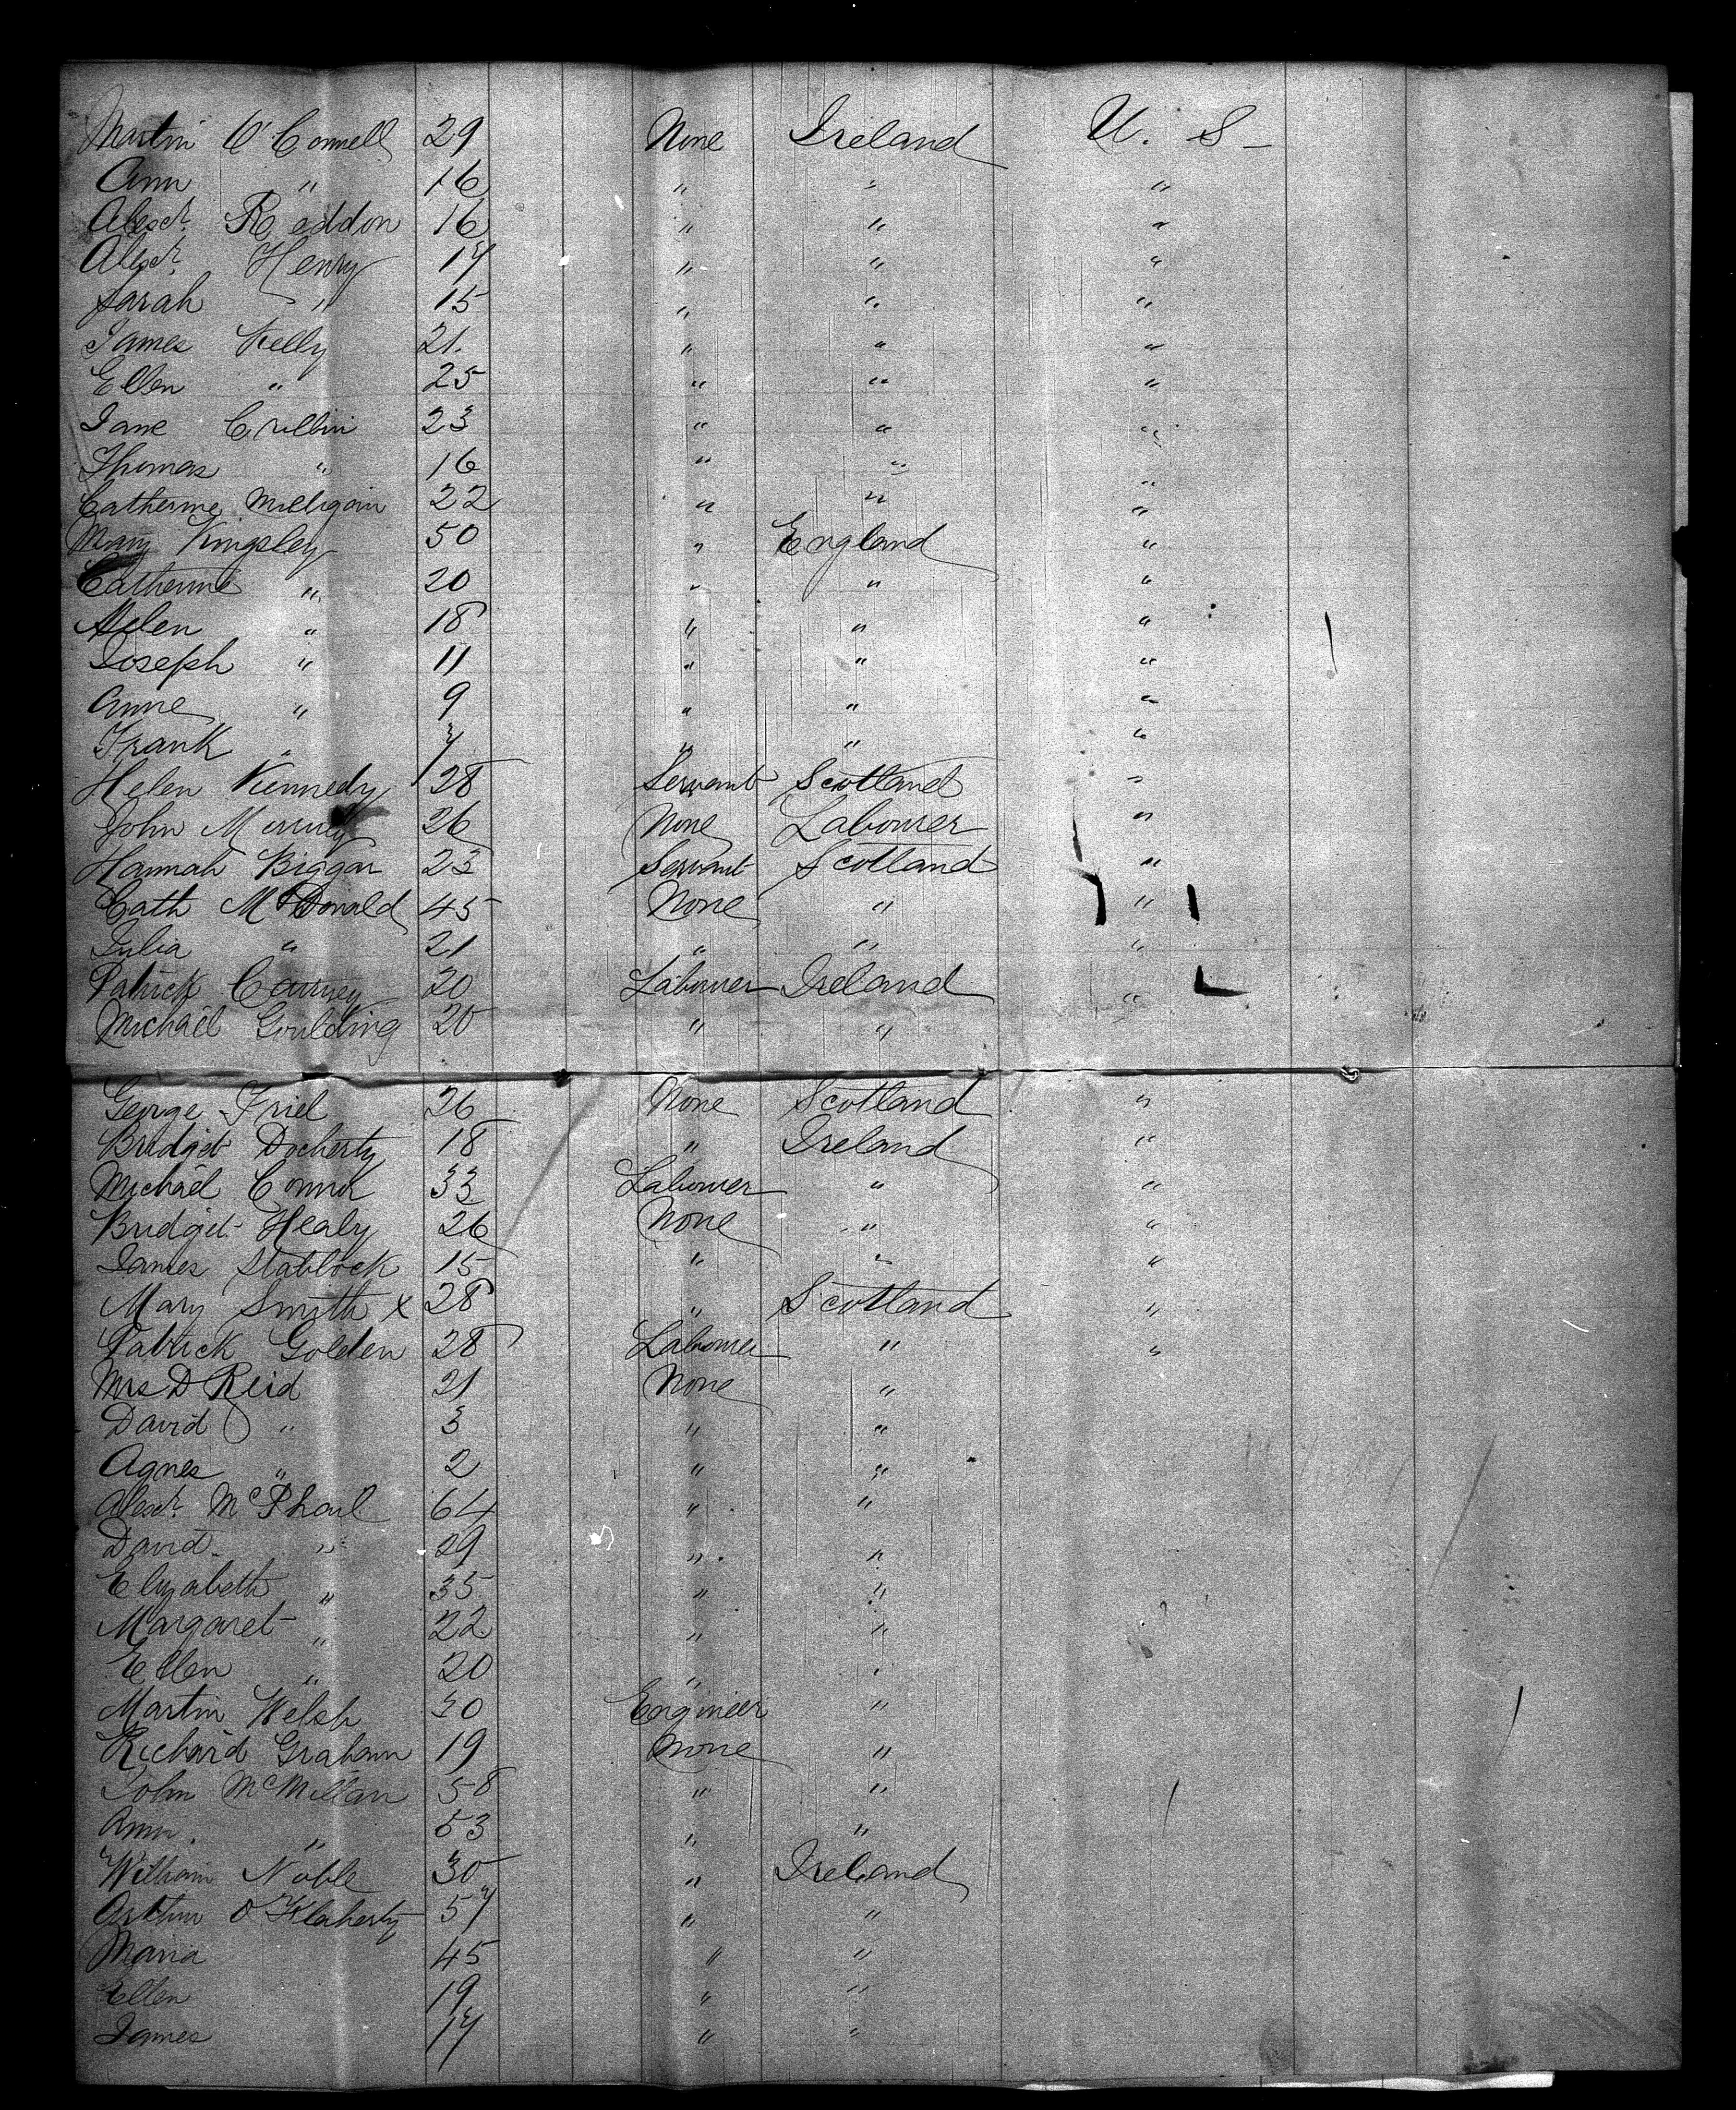 Martin O'Connell 29 None Ireland U. S -
Ann " 16 " " "
Alexr. Reddon 16 " " "
Alexr. Henry 17 " " "
Sarah " 15 " " "
James Kelly 21. " " "
Ellen " 25 " " "
Jane Crillin 23 " " "
Thomas " 16 " " "
Catherine Milligan 22 " " "
Mary Kingsley 50 " England "
Catherine " 20 " " "
Helen " 18 " " "
Joseph " 11 " " "
Anne " 9 " " "
Frank " 7 " " "
Helen Kennedy 28 Servant Scotland "
John Murray 26 None Labourer "
Hannah Biggar 23 Servant Scotland "
Cath McDonald 45 None " "
Julia " 21 " " "
Patrick Carney 20 Labourer Ireland "
Michael Goulding 20 " "
George Friel 26 None Scotland "
Bridget Docherty 18 " Ireland "
Michael Connor 33 Labourer " "
Bridget Healy 26 None " "
James Stablock 15 " " "
Mary Smith x 28 " Scotland "
Patrick Golden 28 Labourer " "
Mrs D Reid 21 None "
David " 3 " "
Agnes " 2 " "
Alexr. McPhail 64 " "
David " 29 " "
Elizabeth " 35 " "
Margaret " 22 " "
Ellen " 20 " "
Martin Welsh 30 Engineer "
Richard Graham 19 None "
John McMillan 58 " "
Ann. " 53 " "
William Noble 30 " Ireland
Arthur O'Flaherty 57 " "
Maria 45 " "
Ellen 19 " "
James 17 " "